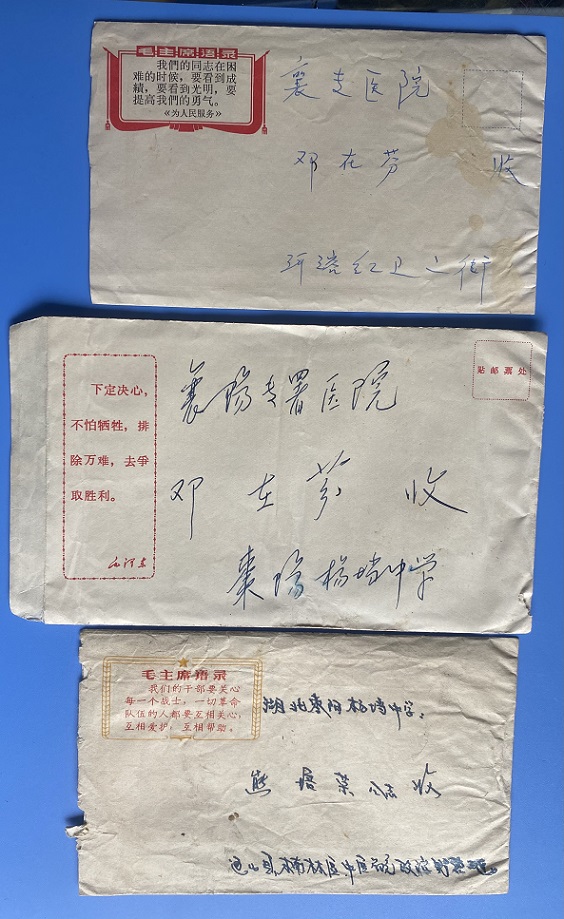 毛主席语录
我們的同志在困
难的时候,要看到成
績,要看到光明,要
提高我們的勇气。
《为人民服务》
襄专医院
邓在芬 收
红卫二街
下定决心,
不怕牺牲,排
除万难,去争
取胜利。
毛泽东
贴邮票处
襄阳专署医院
邓在芬 收
枣阳杨垱中学
毛主席语录
我们的干部要关心
每一个战士,一切革命
队伍的人都要互相关心,
互相爱护,互相帮助。
湖北枣阳杨垱中学
熊 荣 同志 收
通山县楠林区中